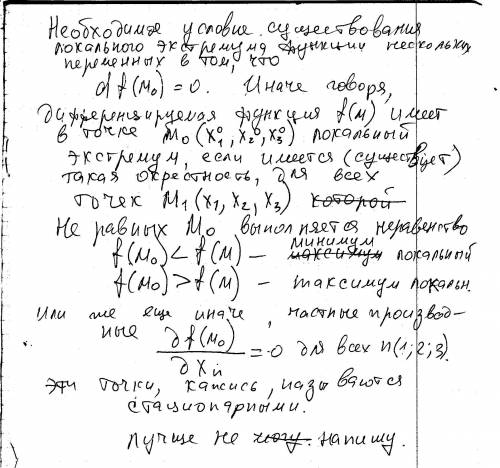 Необходимое условие существования
локального экстремума функции нескольких
переменных в том, что
df(M₀) = 0. Иначе говоря,
дифференцируемая функция f(M) имеет
в точке M₀(X₁⁰, X₂⁰, X₃⁰) локальный
экстремум, если имеется (существует)
такая окрестность, для всех
точек M₁(X₁, X₂, X₃) которой
не равных M₀ выполняется неравенство
f(M₀) < f(M) – максимум минимум локальный
f(M₀) > f(M) – максимум локальн.
Или же еще иначе, частные производ-
ные ∂f(M₀)/∂Xᵢ = 0 для всех n(1; 2; 3).
эти точки, кажись, называются
стационарными.
лучше не могу. напишу.